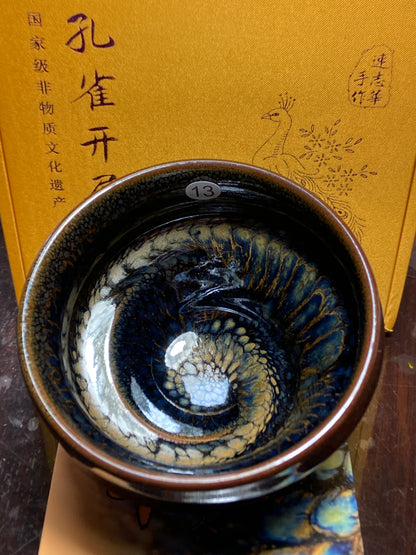 孔雀开
国家级非物质文化遗产
连志华
手作
13